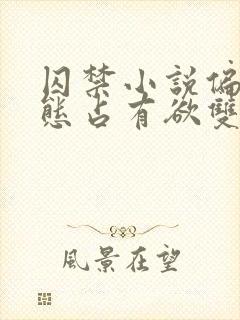 囚禁小說偏
態占有欲雙
風景在望